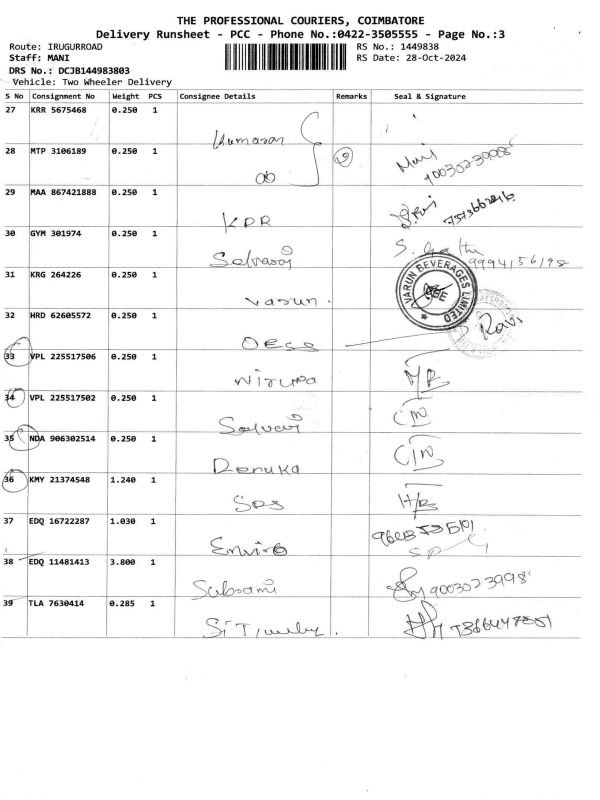 THE PROFESSIONAL COURIERS, COIMBATORE
Delivery Runsheet - PCC - Phone No.:0422-3505555 - Page No.:3
Route: IRUGURROAD RS No.: 1449838
Staff: MANI RS Date: 28-Oct-2024
DRS No.: DCJB144983803
Vehicle: Two Wheeler Delivery
S No Consignment No Weight PCS Consignee Details Remarks Seal & Signature
27 KRR 5675468 0.250 1
Kumaran
28 MTP 3106189 0.250 1
29 MAA 867421888 0.250 1
KPR
30 GYM 301974 0.250 1
Selvaraj 9994156198
31 KRG 264226 0.250 1
VARUN BEVERAGES LIMITED
Varun.
32 HRD 62605572 0.250 1
Ravi
33 VPL 225517506 0.250 1
Nirupa
34 VPL 225517502 0.250 1
35 NDA 906302514 0.250 1
Renuka
36 KMY 21374548 1.240 1
SRS
37 EDQ 16722287 1.030 1
Enviro
38 EDQ 11481413 3.800 1
Sabsami 9003023998
39 TLA 7630414 0.285 1